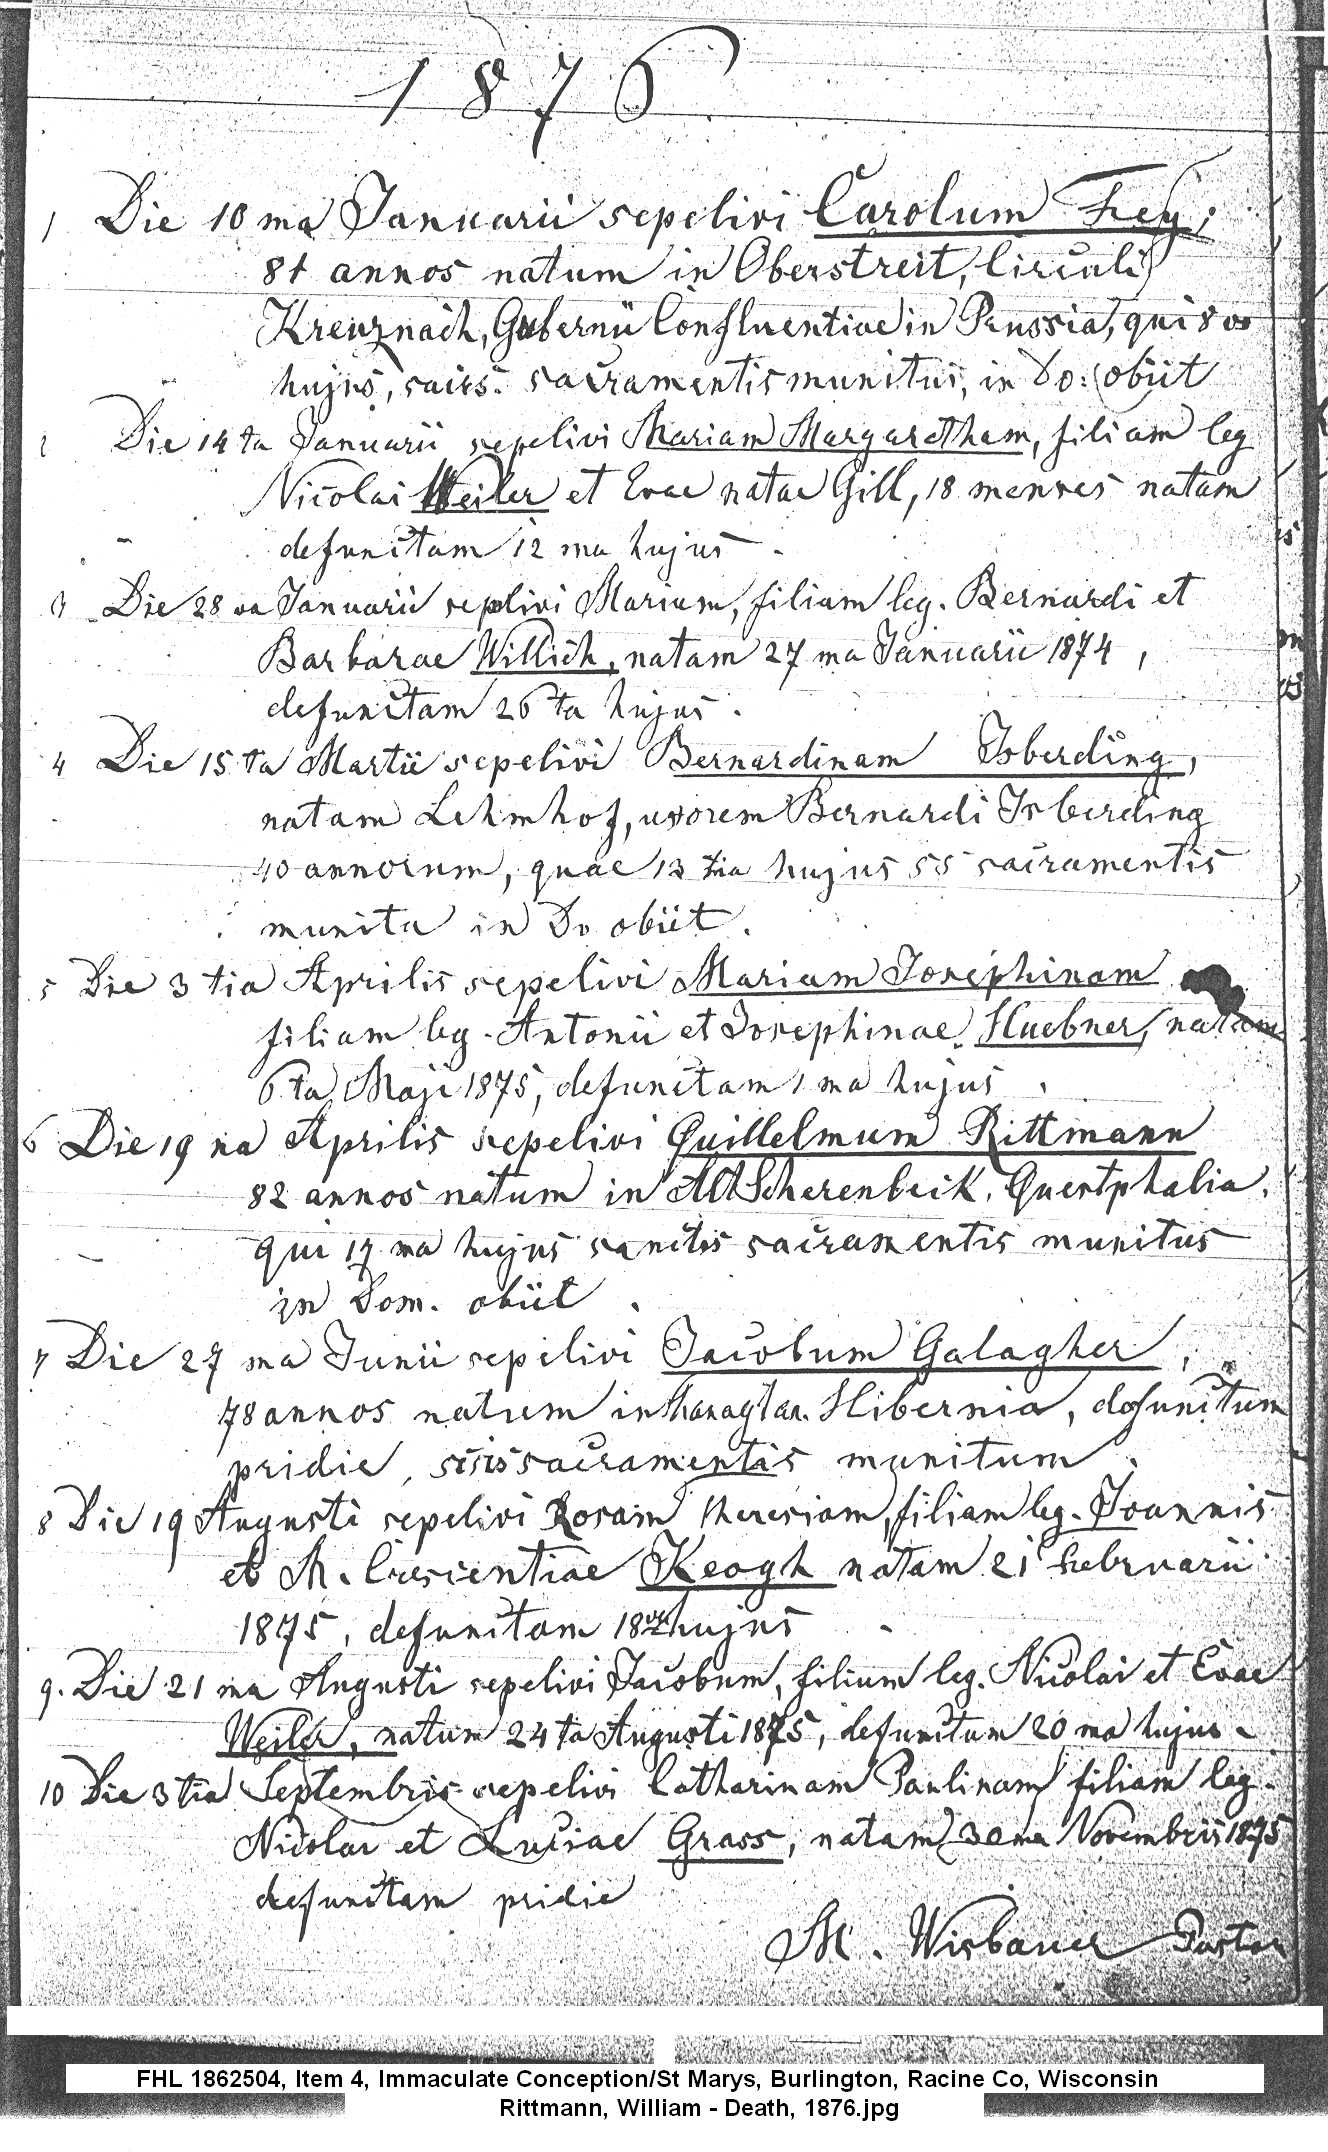 1876
1 Die 10 ma Januarii sepelivi Carolum Frey;
81 annos natum in Oberstreit, Circuli
Kreuznach, Gubernii Confluentiae in Prussia, qui 8 va
hujus, sacrs. sacramentis munitus, in Do: obiit
2 Die 14 ta Januarii sepelivi Mariam Margaretham, filiam leg
Nicolai Weiler et Evae natae Gill, 18 menses natam
defunctam 12 ma hujus.
3 Die 28 va Januarii sepelivi Mariam, filiam leg. Bernardi et
Barbarae Willich, natam 27 ma Januarii 1874,
defunctam 26 ta hujus.
4 Die 15 ta Martii sepelivi Bernardinam Isberding,
natam Lehmhof, uxorem Bernardi Isberding
40 annorum, quae 13 tia hujus SS sacramentis
munita in Do obiit.
5 Die 3 tia Aprilis sepelivi Mariam Josephinam
filiam leg. Antonii et Josephinae Huebner, natam
6 ta Maji 1875, defunctam 1 ma hujus.
6 Die 19 na Aprilis sepelivi Guillelmum Rittmann
82 annos natum in Alt Scherenbeck, Guestphalia,
qui 17 ma hujus sanctis sacramentis munitus
in Dom. obiit.
7 Die 27 ma Junii sepelivi Jacobum Galagher,
78 annos natum in Hibernia, defunctum
pridie, sacramentis munitum.
8 Die 19 Augusti sepelivi Rosam Theresiam, filiam leg. Joannis
et M. Crescentiae Keogh natam 21 Februarii
1875, defunctam 18 va hujus.
9. Die 21 ma Augusti sepelivi Jacobum, filium leg. Nicolai et Evae
Weiler, natum 24 ta Augusti 1875, defunctum 20 ma hujus.
10 Die 3 tia Septembris sepelivi Catharinam Paulinam filiam leg.
Nicolai et Luciae Grass, natam 30 ma Novembris 1875
defunctam pridie
M. Wisbauer Pastor
FHL 1862504, Item 4, Immaculate Conception/St Marys, Burlington, Racine Co, Wisconsin
Rittmann, William - Death, 1876.jpg